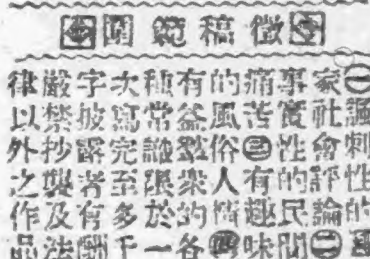 徵稿範圍
㊀諷刺性的
家社會評論㊁
事實性的民間
痛苦㊂有趣味
的風俗人情㊃
有益羣眾的各
種常識限於一
次寫完至多千
字披露者有酬
嚴禁抄襲及法
律以外之作品